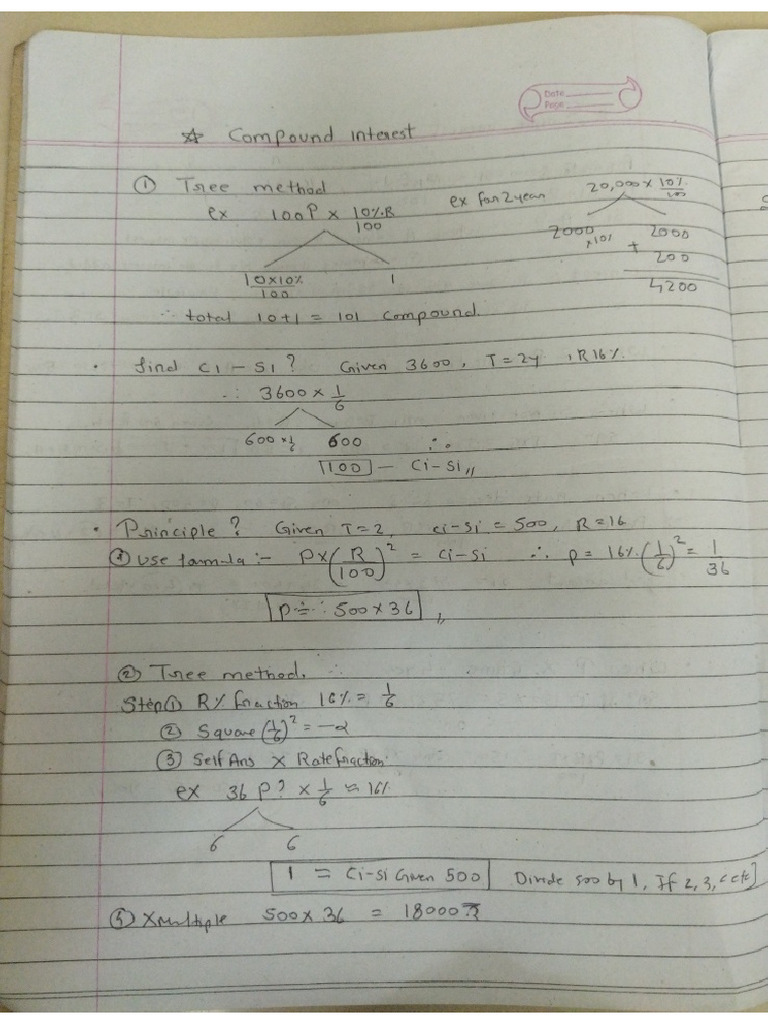 Date
Page
☆ Compound interest
① Tree method
ex 100P × 10%.R/100
ex for 2 year 20,000 × 10%/100
2000 ×10% 2000
+ 200
4200
10×10%/100 1
∴ total 10+1 = 101 Compound.
• find CI - SI? Given 3600, T=2y, R16%.
∴ 3600 × 1/6
600 × 1/6 600 ∴
100 - Ci - Si,,
• Principle? Given T=2, ci-si = 500, R=16
① Use formula :- P×(R/100)² = Ci-Si ∴ P = 16%.(1/6)² = 1/36
P = ∴ 500 × 36 ,,
② Tree method, ∴
Step① R% fraction 16% = 1/6
② Square (1/6)² =
③ Self Ans × Rate fraction
ex 36 P? × 1/6 = 16%
6 6
1 = Ci-si Given 500 Divide 500 by 1, If 2, 3,
⑤ Xmultiple 500 × 36 = 18000